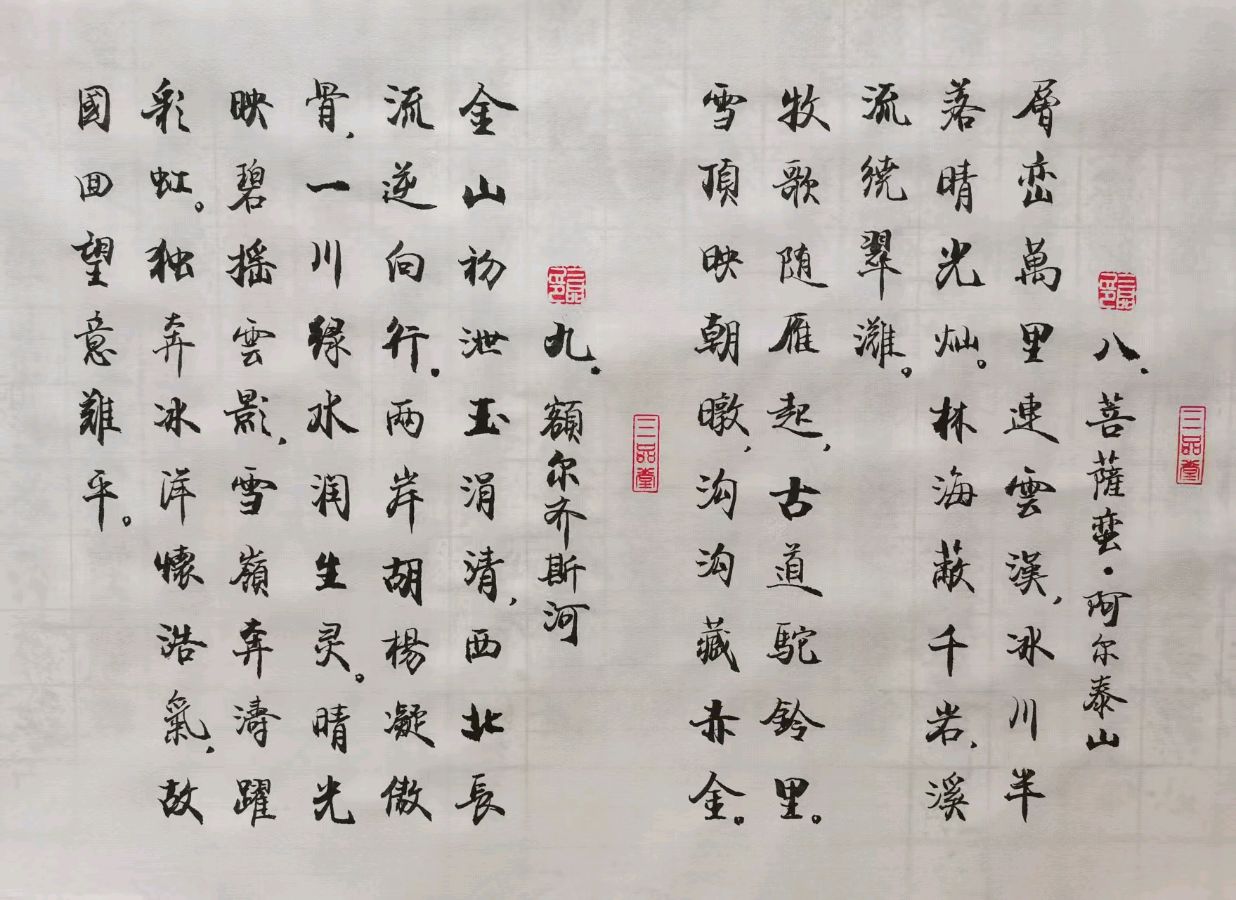 三品堂
八.菩薩蛮·阿尔泰山
層峦萬里連雲漢,冰川半
落晴光灿。林海蔽千岩,溪
流繞翠灘。
牧歌随雁起,古道駝鈴里。
雪頂映朝暾,沟沟藏赤金。
三品堂
九.額尔齐斯河
金山初泄玉涓清,西北長
流逆向行。两岸胡楊凝傲
骨,一川绿水润生灵。晴光
映碧摇雲影,雪嶺奔濤躍
彩虹。独奔冰洋懷浩氣,故
國回望意難平。